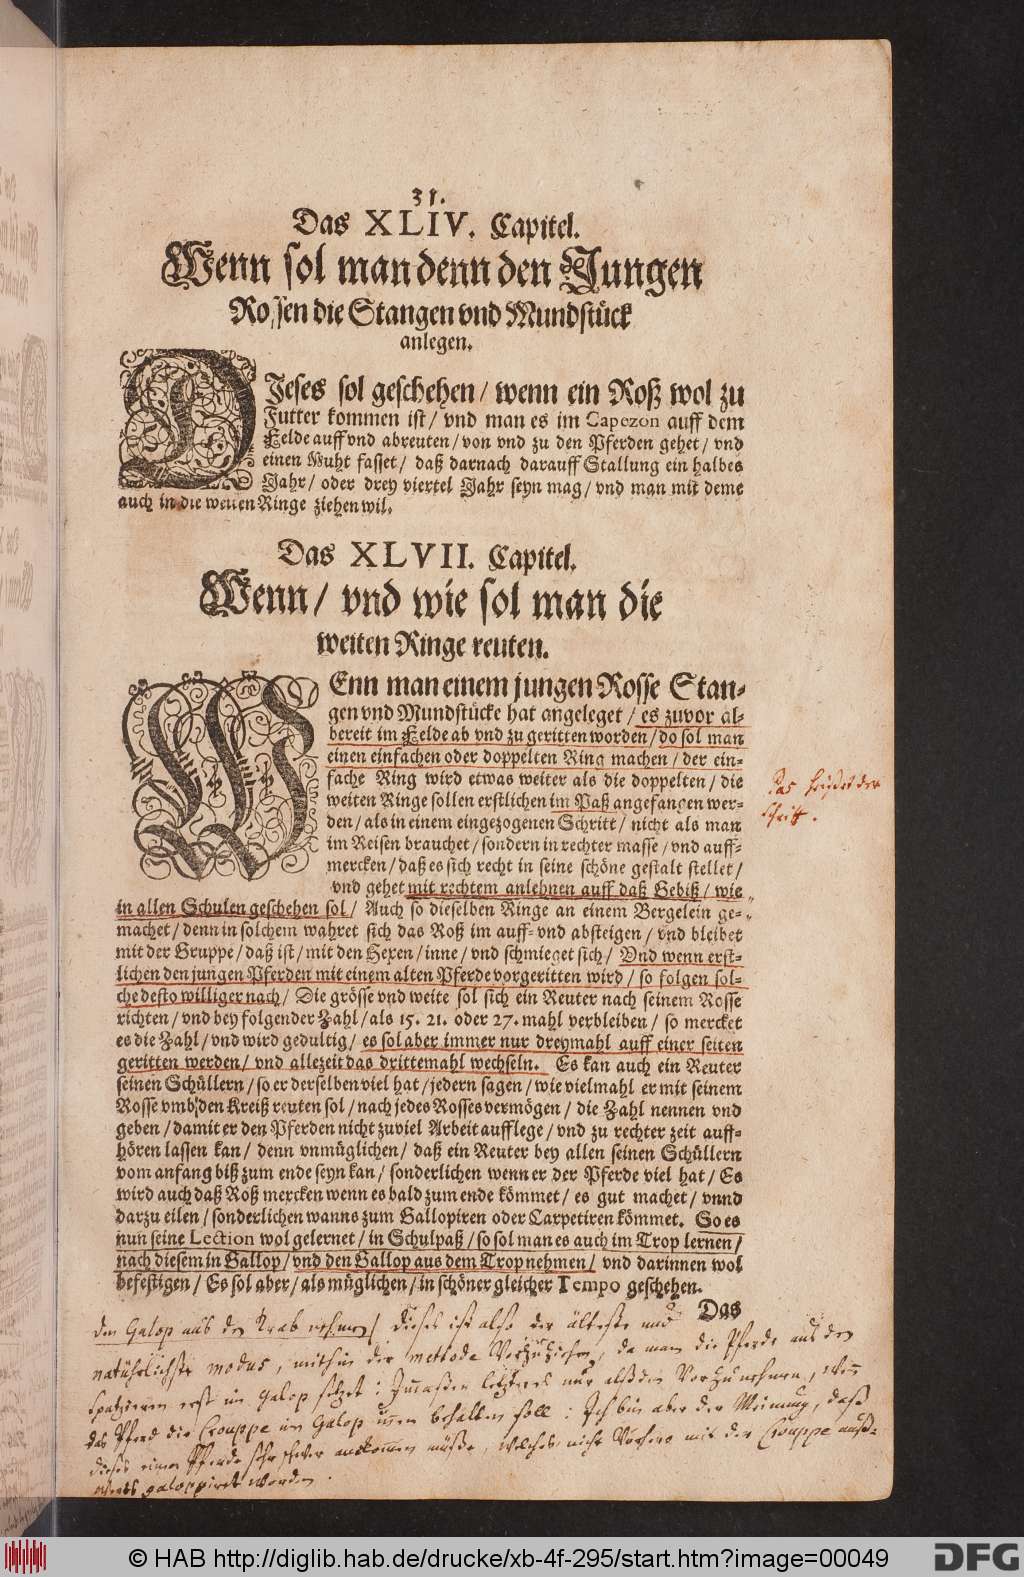 31.
Das XLIV. Capitel.
Wenn sol man denn den Jungen
Rossen die Stangen vnd Mundstück
anlegen.
DJeses sol geschehen / wenn ein Roß wol zu
Futter kommen ist / vnd man es im Capezon auff dem
Felde auff vnd abreuten / von vnd zu den Pferden gehet / vnd
einen Muht fasset / daß darnach darauff Stallung ein halbes
Jahr / oder drey viertel Jahr seyn mag / vnd man mit deme
auch in die weiten Ringe ziehen wil.
Das XLVII. Capitel.
Wenn / vnd wie sol man die
weiten Ringe reuten.
WEnn man einem jungen Rosse Stan-
gen vnd Mundstücke hat angeleget / es zuvor al-
bereit im Felde ab vnd zu geritten worden / do sol man
einen einfachen oder doppelten Ring machen / der ein-
fache Ring wird etwas weiter als die doppelten / die
weiten Ringe sollen erstlichen im Paß angefangen wer-
den / als in einem eingezogenen Schritt / nicht als man
im Reisen brauchet / sondern in rechter masse / vnd auff-
mercken / daß es sich recht in seine schöne gestalt stellet /
vnd gehet mit rechtem anlehnen auff daß Gebiß / wie
in allen Schulen geschehen sol / Auch so dieselben Ringe an einem Bergelein ge-
machet / denn in solchem wahret sich das Roß im auff- vnd absteigen / vnd bleibet
mit der Gruppe / daß ist / mit den Hexen / inne / vnd schmieget sich / Vnd wenn erst-
lichen den jungen Pferden mit einem alten Pferde vorgeritten wird / so folgen sol-
che desto williger nach / Die grösse vnd weite sol sich ein Reuter nach seinem Rosse
richten / vnd bey folgender Zahl / als 15. 21. oder 27. mahl verbleiben / so mercket
es die Zahl / vnd wird gedultig / es sol aber immer nur dreymahl auff einer seiten
geritten werden / vnd allezeit das drittemahl wechseln. Es kan auch ein Reuter
seinen Schüllern / so er derselben viel hat / jedern sagen / wie vielmahl er mit seinem
Rosse vmb den Kreiß reuten sol / nach jedes Rosses vermögen / die Zahl nennen vnd
geben / damit er den Pferden nicht zuviel Arbeit aufflege / vnd zu rechter zeit auff-
hören lassen kan / denn vnmüglichen / daß ein Reuter bey allen seinen Schüllern
vom anfang biß zum ende seyn kan / sonderlichen wenn er der Pferde viel hat / Es
wird auch daß Roß mercken wenn es bald zum ende kömmet / es gut machet / vnnd
darzu eilen / sonderlichen wanns zum Gallopiren oder Carpetiren kömmet. So es
nun seine Lection wol gelernet / in Schulpaß / so sol man es auch im Trop lernen /
nach diesem in Gallop / vnd den Gallop aus dem Trop nehmen / vnd darinnen wol
befestigen / Es sol aber / als müglichen / in schöner gleicher Tempo geschehen.
Das
Das heißet der
schritt.
den Galop aus den Trab nehmen / dieses ist also der älteste und
natührlichste modus, mithin der methode Vorzuziehen, da man die Pferde aus den
erst im Galop setzet: letzteres nur alßdan Vorzunehmen, wen
das Pferd die Crouppe im Galop inen behalten soll: Ich bin aber der Meinung, daß
dieses einen Pferde sehr schwer ankomen müße, welches nicht Vorhero mit der Crouppe auß-
wärts galoppiret worden.
© HAB http://diglib.hab.de/drucke/xb-4f-295/start.htm?image=00049
DFG